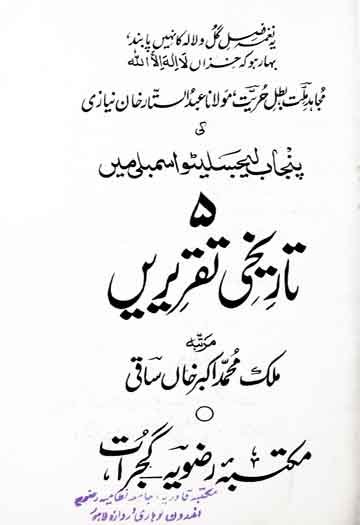 یہ نغمہ فصلِ گل و لالہ کا نہیں پابند،
بہار ہو کہ خزاں لا الہ الا اللہ
مجاہدِ ملت بطلِ حریت، مولانا عبدالستار خان نیازی
کی
پنجاب لیجسلیٹو اسمبلی میں
۵
تاریخی تقریریں
مرتبہ
ملک محمد اکبر خاں ساقی
مکتبۂ رضویہ گجرات
مکتبہ قادریہ، جامعہ نظامیہ رضویہ
اندرون لوہاری دروازہ لاہور